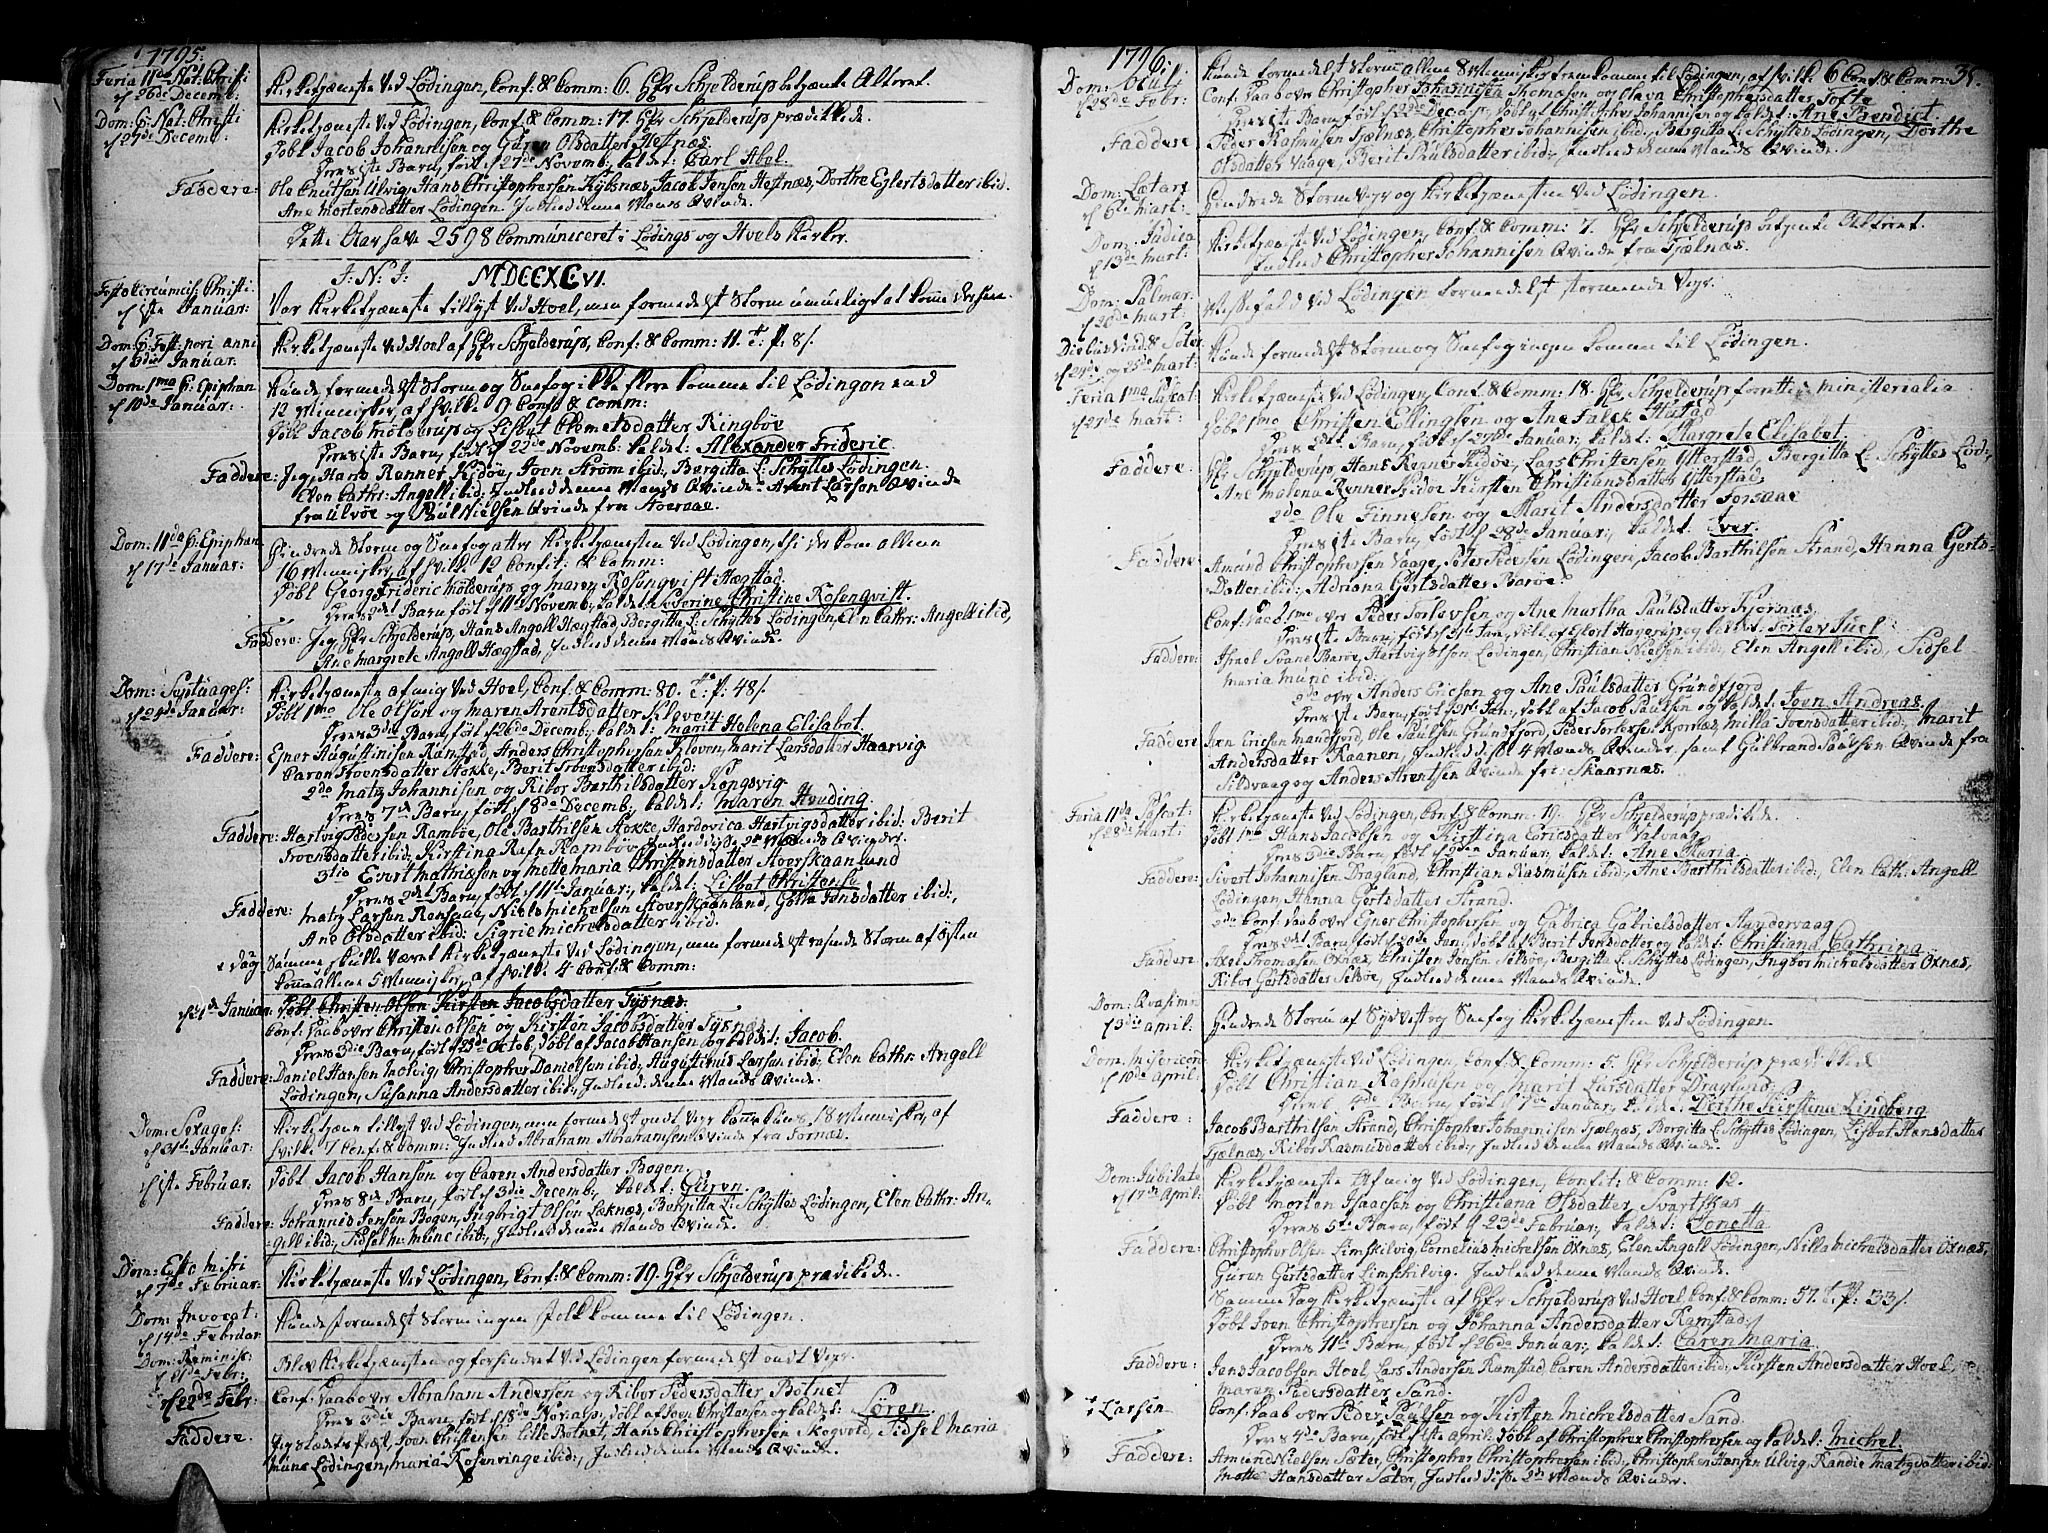 1795.
Feria IIda Nat: Christi
d 26de Decemb:
Kirketjæneste ved Lødingen, Conf: & Comm: 6. Hr Schjelderup betjente Alteret.
Dom: p: Nat: Christi
d 27de Decemb:
Kirketjæneste ved Lødingen, Conf: & Comm: 17. Hr Schjelderup prædikede.
Døbt Jacob Johannisen og Guren Olsdatter Hefnæs.
Deres 1ste Barn, født d 27de Novemb: kaldet: Carl Abel.
Faddere: Ole Cnutsen Ulvig, Hans Christophersen Kybnæs, Jacob Jensen Hefnæs, Dorthe Eglertsdatter ibid.
Ane Mortensdatter Lødingen. Indleed denne Mands Qvinde.
Dette Aar have 2598 Communiceret i Lødings og Hvels Kirker.
J: N: J: MDCCXCVI.
Festo Circumcis: Christi
d 1ste Januar:
Var Kirketjæneste tillyst ved Hoel, men formedelst Storm umueligt at komme dersen.
d 3die Januar.
Kirketjæneste ved Hoel af Hr Schjelderup, Conf: & Comm: 11. T: P: 8/.
Dom: 1ma p: Epiphan
d 10de Januar:
Kunde formedelst Storm og Snefog ikke flere komme til Lødingen end
12 Mennisker, af hvilke 9 Conf: & Comm:
Døbt Jacob Hølderup og Lisbet Clemetsdatter Ringbøe
Deres 1ste Barn, født d 22de Novemb: kaldet: Alexander Frideric
Faddere: Jeg, Hans Renner Nidøe, Joen Strøm ibid:, Bergitta L: Schyttes Lødingen.
Elen Cathr: Angell ibid: Indleed denne Mands Qvinde Arent Larsen Qvinde
fra Ulvøe og Paul Nielsen Qvinde fra Stoeraae.
Dom: IIda p: Epiphan
d 17de Januar:
Hindrede Storm og Snefog atter Kirketjænesten ved Lødingen, thi der kom allene
16 Mennisker, af hvilke 12 Confit: & Comm:
Døbt Georg Frideric Hølderup og Maren Rosenqvist Hægstad.
Deres 2det Barn, født d 11te Novemb: kaldet: Severine Christine Rosenqvist.
Faddere: Jeg, Hr Schjelderup, Hans Angell Hægstad, Bergitta L: Schyttes Lødingen, Elen Cathr: Angell ibid,
Ane Margrete Angell Hægstad, Indleed denne Mands Qvinde.
Dom: Septuages:
d 24de Januar:
Kirketjæneste af mig ved Hoel, Conf: & Comm: 80. T: P: 48/.
Døbt 1mo Ole Olsen og Maren Arentsdatter Kloven
Deres 3die Barn, født d 26de Decemb: kaldet: Marit Helena Elisabet.
Faddere: Ejner Augustinisen Ramstad, Anders Christophersen Kloven, Marit Larsdatter Haarvig
Caren Troensdatter Stokke, Berit Troensdatter ibid:
2do Matz Johannisen og Ribor Barthilsdatter Kongsvig
Deres 7de Barn, født d 8de Decemb: kaldet: Maren Hveding.
Faddere: Hartvig Pedersen Rambøe, Ole Barthilsen Stokke, Hardovica Hartvigsdatter ibid: Berit
Troensdatter ibid: Kirstina Rafn Rambøe, Indleed disse 2de Mænds Qvinder.
3tio Evert Mathiæsen og Mette Maria Christensdatter Stoerskaanland
Deres 2det Barn, født d 11te Januar:, kaldet: Lisbet Christense
Faddere: Matz Larsen Rensaae, Niels Michelsen Stoerskaanland, Golla Jensdatter ibid:,
Ane Olsdatter ibid: Sigrie Michelsdatter ibid.
+ Dag Samme skulle været Kirketjæneste ved Lødingen, men formedelst rasende Storm af Østen
kom allene 5 Mennisker, af hvilke 4 Conf: & Comm:
Døbt Christen Olsen Kirsten Jacobsdatter Tysnæs.
Conf: Daab over Christen Olsen og Kirsten Jacobsdatter Tysnæs.
Deres 3die Barn, født d 23de Octob, døbt af Jacob Hansen og kaldet: Jacob.
Faddere: Daniel Hansen Holvig, Christopher Danielsen ibid:, Augustinus Larsen ibid:, Elen Cathr: Angell
Lødingen, Susanna Andersdatter ibid:, Indleed denne Mands Qvinde.
Dom: Sexages:
d 31te Januar:
Kirketjæn: tillyst ved Lødingen, men formedelst ondt Vejr komme kuns 18 Mennisker, af
hvilke 7 Conf: & Comm: Indleed Abraham Abrahamsens Qvinde fra Fornæs.
d 1ste Februar.
Døbt Jacob Hansen og Caren Andersdatter Bogen.
Deres 8de Barn, født d 3die Decemb:, kaldet: Guren.
Faddere: Johannes Jensen Bogen, Ingbrigt Olsen Leknæs, Bergitta L: Schyttes Lødingen, Elen Cathr: An-
gell ibid:, Sidsel M: Münc ibid:, Indleed denne Mands Qvinde.
Dom: Esto mihi
d 7de Februar.
Kirketjæneste ved Lødingen, Conf: & Comm: 19. Hr Schjelderup prædikede.
Dom: Invocat:
d 14de Februar
Kunde formedelst Storm ingen Folk komme til Lødingen.
Dom: Reminis:
d 21de Febr:
Blev Kirketjænesten og forhindret ved Lødingen formedelst ondt Vejr.
d 22de Febr:
Conf: Daab over Abraham Andersen og Ribor Pedersdatter Botnet
Deres 3die Barn, født d 8de Novemb:, døbt af Joen Christensen og kaldet: Søren.
Faddere.
Jegstædets Præst, Joen Christensen Lille Botnet, Hans Christophersen Skogvold, Sidsel Maria
Münc Lødingen, Maria Rosenvinge ibid:, Indleed denne Mands Qvinde.
1796.
35.
Dom: Oculi
d 28de Febr:
Kunde formedelst Storm allene 8 Mennisker fremkomme til Lødingen, af hvilke 6 Conf: & Comm:
Conf: Daab over Christopher Thomæsen og Olava Christophersdatter Tofte
Deres 1ste Barn, født d 22de Dec: døbt af Christopher Johannisen og kaldet: Ane Bendict.
Faddere
Peder Rasmusen Fjælnæs, Christopher Johannisen ibid:, Bergitta L: Schyttes Lødingen, Dorthe
Olsdatter Vaage, Berit Paulsdatter ibid:, Indleed denne Mands Qvinde.
Dom: Lætare
d 6te Mart:
Hindrede Storm Vejr og Kirketjænesten ved Lødingen.
Dom: Judica
d 13de Mart:
Kirketjæneste ved Lødingen, Conf: & Comm: 7. Hr Schjelderup betjente Alteret.
Indleed Christopher Johannisen Qvinde fra Fjælnæs.
Dom: Palmar:
d 20de Mart:
Messefald ved Lødingen formedelst stormende Vejr.
d 24de og 25de Mart:
Kunde formedelst Storm og Snefog ingen komme til Lødingen.
Feria 1ma Pascat:
d 27de Mart:
Kirketjæneste ved Lødingen, Conf: & Comm: 18. Hr Schjelderup forrettede ministerialia
Døbt 1mo Christen Ellingsen og Ane Falck Hustad
Deres 2det Barn, født d 27de Januar; kaldet: Margrete Elisabet.
Faddere.
Hr Schjelderup, Hans Renner Nidøe, Lars Christensen Ytterstad, Bergitta L: Schyttes Lød:,
Ane Malena Renner Nidøe, Kirsten Christiansdatter Ytterstad,
2do Ole Finnesen og Marit Andersdatter Forsaae
Deres 1ste Barn, født d 28de Januar:, kaldet: Iver.
Faddere
Amund Christophersen Vaage, Peter Pedersen Lødingen, Jacob Barthilsen Strand, Hanna Gerts-
Datter ibid:, Adriana Gertsdatter Barøe.
Conf: Daab 1mo over Peder Torlevsen og Ane Martha Paulsdatter Kjornæs,
Faddere:
Israel Svand Barøe, Hartvig Olsen Lødingen, Christian Nielsen ibid:, Elen Angell ibid:, Sidsel
Maria Münc ibid:
2do over Anders Ericsen og Ane Paulsdatter Grundfjord
døbt af Jacob Paulsen og kaldet: Joen Andreas.
Faddere
Joen Ericsen Mandfjord, Ole Paulsen Grundfjord, Peder Torlevsen Kjornæs, Milla Joensdatter ibid:, Marit
Andersdatter Raanen, Indleed disse 4 Mænds Qvinder, samt Gulbrand Paulsen Qvinde fra
Sildvaag og Anders Arentsen Qvinde fra Skaarnæs.
Feria IIda Pascat:
d 28de Mart:
Kirketjæneste ved Lødingen, Conf: & Comm: 19. Hr Schjelderup prædikede.
Døbt 1mo Hans Jacobsen og Kirstina Ericsdatter Valvaag
Deres 3die Barn, født d 9den Januar, kaldet: Ane Maria.
Faddere:
Sivert Johannisen Dragland, Christian Rasmusen ibid:, Ane Barthilsdatter ibid:, Elen Cath: Angell
Lødingen, Hanna Gertsdatter Strand.
2do Conf: Daab over Ejner Christophersen og Gabrica Gabrielsdatter Hundervaag
Deres 2det Barn, født d 20de Jan: døbt af Berit Jensdatter og kaldet: Christiana Cathrina
Faddere
Axel Thomæsen Oxnæs, Christen Jensen Selsøe, Bergitta L: Schyttes Lødingen, Ingbor Michelsdatter Oxnæs,
Ribor Gertsdatter Selsøe, Indleed denne Mands Qvinde.
Dom: Qvasimn
d 3die April:
Hindrede Storm af Sydvest og Snefog Kirketjænesten ved Lødingen.
Dom: Misericord
d 10de April:
Kirketjæneste ved Lødingen, Conf: & Comm: 5. Hr Schjelderup prædikede
Døbt Christian Rasmusen og Marit Larsdatter Dragland:
Deres 4de Barn, født d 7de Januar, kaldet: Dorthe Kirstina Lindberg
Faddere:
Jacob Barthilsen Strand, Christopher Johannisen Fjælnæs, Bergitta L: Schyttes Lødingen, Lisbet Hansdatter
Fjælnæs, Ribor Rasmusdatter ibid:, Indleed denne Mands Qvinde.
Dom: Jubilate
d 17de April:
Kirketjæneste af mig ved Lødingen, Confit: & Comm: 12.
Døbt Morten Isaacsen og Christiana Olsdatter Svartskas
Deres 5te Barn, født d 23de Februar:, kaldet: Tonetta
Faddere:
Christopher Olsen Limskilvig, Cornelius Michelsen Oxnæs, Elen Angell Lødingen, Nilla Michelsdatter Oxnæs,
Guren Gertsdatter Limskilvig. Indleed denne Mands Qvinde.
Samme Dag Kirketjæneste af Hr Schjelderup ved Hoel Conf: & Comm: 57. T: P: 33/.
Døbt Joen Christophersen og Johanna Andersdatter Ramstad:
Deres 11te Barn, født d 26de Januar:, kaldet: Caren Maria.
Faddere:
Jens Jacobsen Hoel, Lars Andersen Ramstad, Caren Andersdatter ibid:, Kirsten Andersdatter Hoel,
Maren Pedersdatter Sand.
+ Larsen
Conf: Daab over Peder + Paulsen og Kirsten Michelsdatter Sand.
Deres 4de Barn, født d 1ste April: døbt af Christopher Christophersen og kaldet: Michel.
Faddere:
Amund Nielsen Sæter, Christopher Christophersen ibid:, Christopher Hansen Ulvig, Randie Matzdatter ibid:
Mette Hansdatter Sæter, Indleed disse 2de Mænds Qvinder.